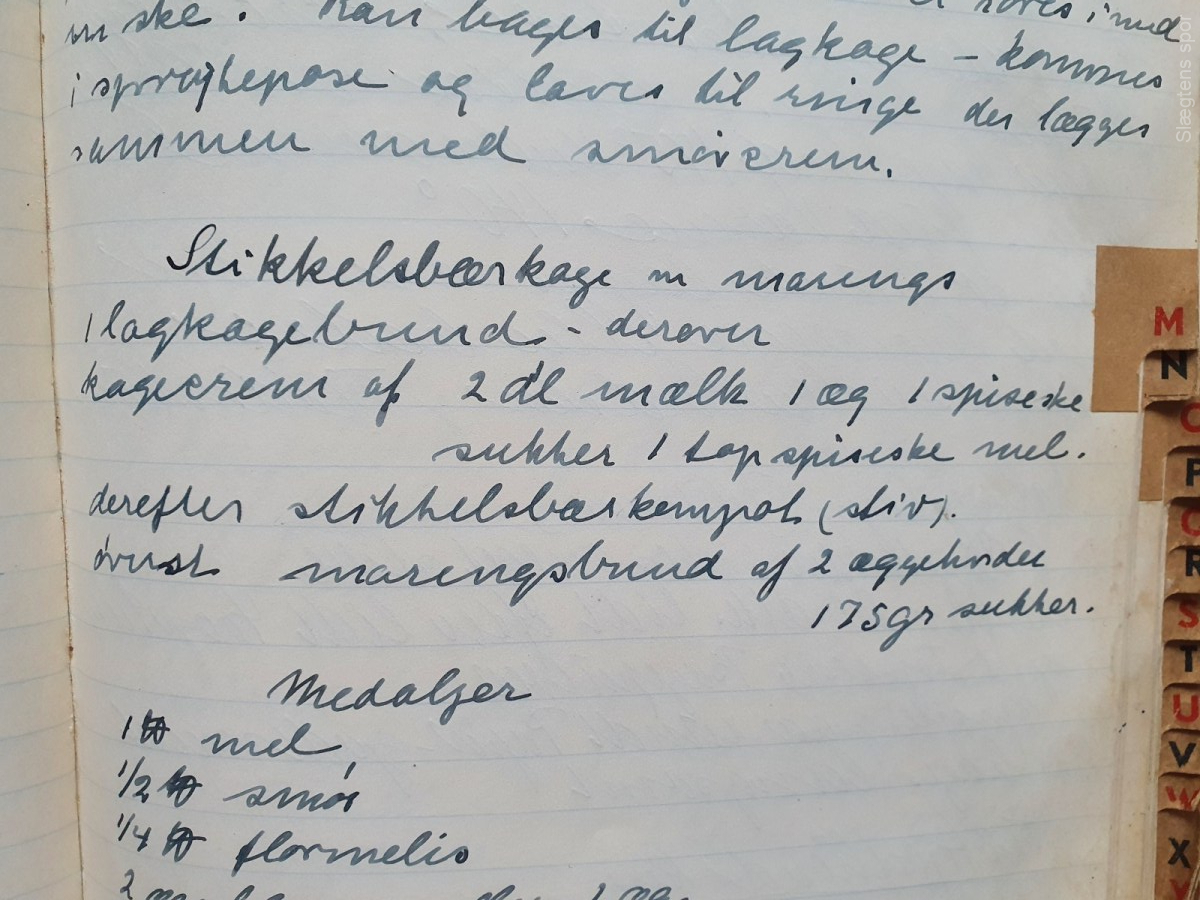 røres i med
m ske. Kan bages til lagkage - kommes
i sprøjtepose og laves til ringe der lægges
sammen med smørcrem.
Stikkelsbærkage m marengs
1 lagkagebund - derover
kagecrem af 2 dl mælk 1 æg 1 spiseske
sukker 1 top spiseske mel.
derefter stikkelsbærkompot (stiv).
øverst marengsbund af 2 æggehvider
175 gr sukker.
Medaljer
1 ℔ mel
1/2 ℔ smør
1/4 ℔ flormelis
2 1 æg
M
N
O
P
Q
R
S
T
U
V
W
X
Y
Slægtens spor